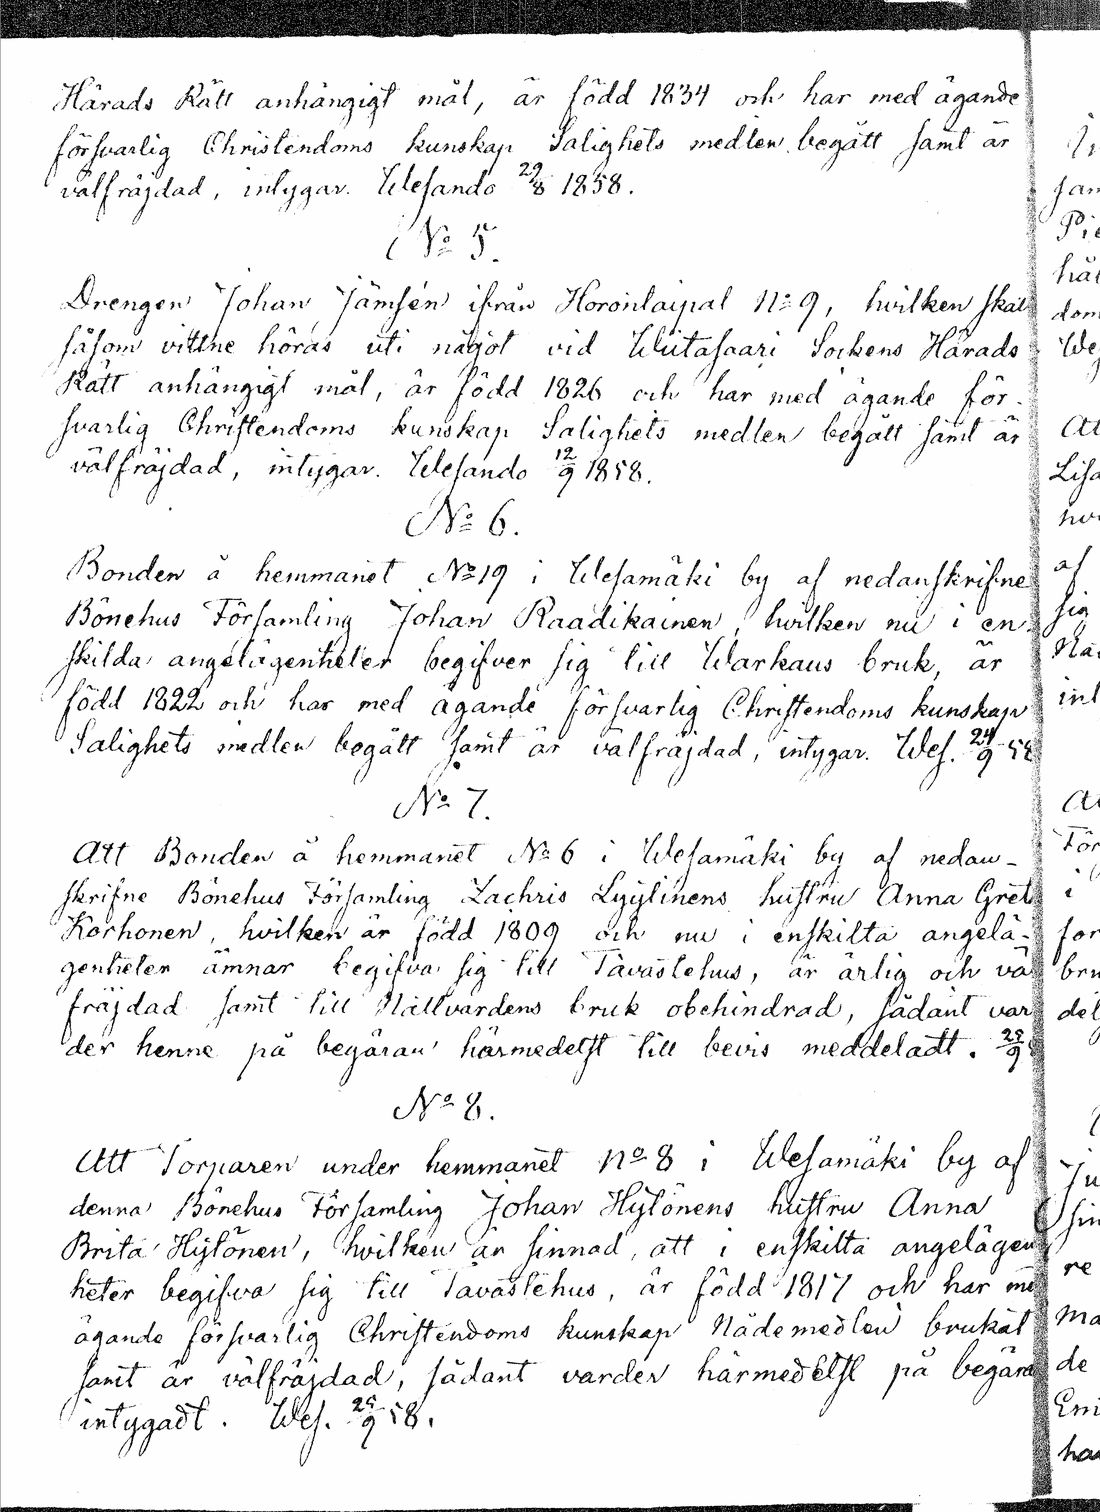 Härads Rätt anhängigt mål, är född 1834 och har med ägande
försvarlig Christendoms kunskap Salighets medlen begått samt är
välfräjdad, intygar. Wesando 29/8 1858.
No 5.
Drengen Johan Jämsén ifrån Horonlaipal No 9, hvilken skal
såsom vittne höras uti något vid Wiitasaari Sockens Härads
Rätt anhängigt mål, är född 1826 och har med ägande för-
svarlig Christendoms kunskap Salighets medlen begått samt är
välfräjdad, intygar. Wesando 12/9 1858.
No 6.
Bonden å hemmanet No 19 i Wesamäki by af nedanskrifne
Bönehus Församling Johan Raadikainen, hvilken nu i en-
skilda angelägenheter begifver sig till Warkaus bruk, är
född 1822 och har med ägande försvarlig Christendoms kunskap
Salighets medlen begått samt är välfräjdad, intygar. Wes. 24/9 58
No 7.
Att Bonden å hemmanet No 6 i Wesamäki by af nedan-
skrifne Bönehus Församling Zachris Lyytinens hustru Anna Greta
Korhonen, hvilken är född 1809 och nu i enskilta angelä-
genheter ämnar begifva sig till Tavastehus, är ärlig och vä
fräjdad samt till Nattvardens bruk obehindrad, sådant var
der henne på begäran härmedelst till bevis meddeladt. 25/9
No 8.
Att Torparen under hemmanet No 8 i Wesamäki by af
denna Bönehus Församling Johan Hytönens hustru Anna
Brita Hytönen, hvilken är sinnad, att i enskilta angelägen
heter begifva sig till Tavastehus, är född 1817 och har me
ägande försvarlig Christendoms kunskap Nådemedlen brukat
samt är välfräjdad, sådant varder härmedelst på begära
intygadt. Wes. 25/9 58.